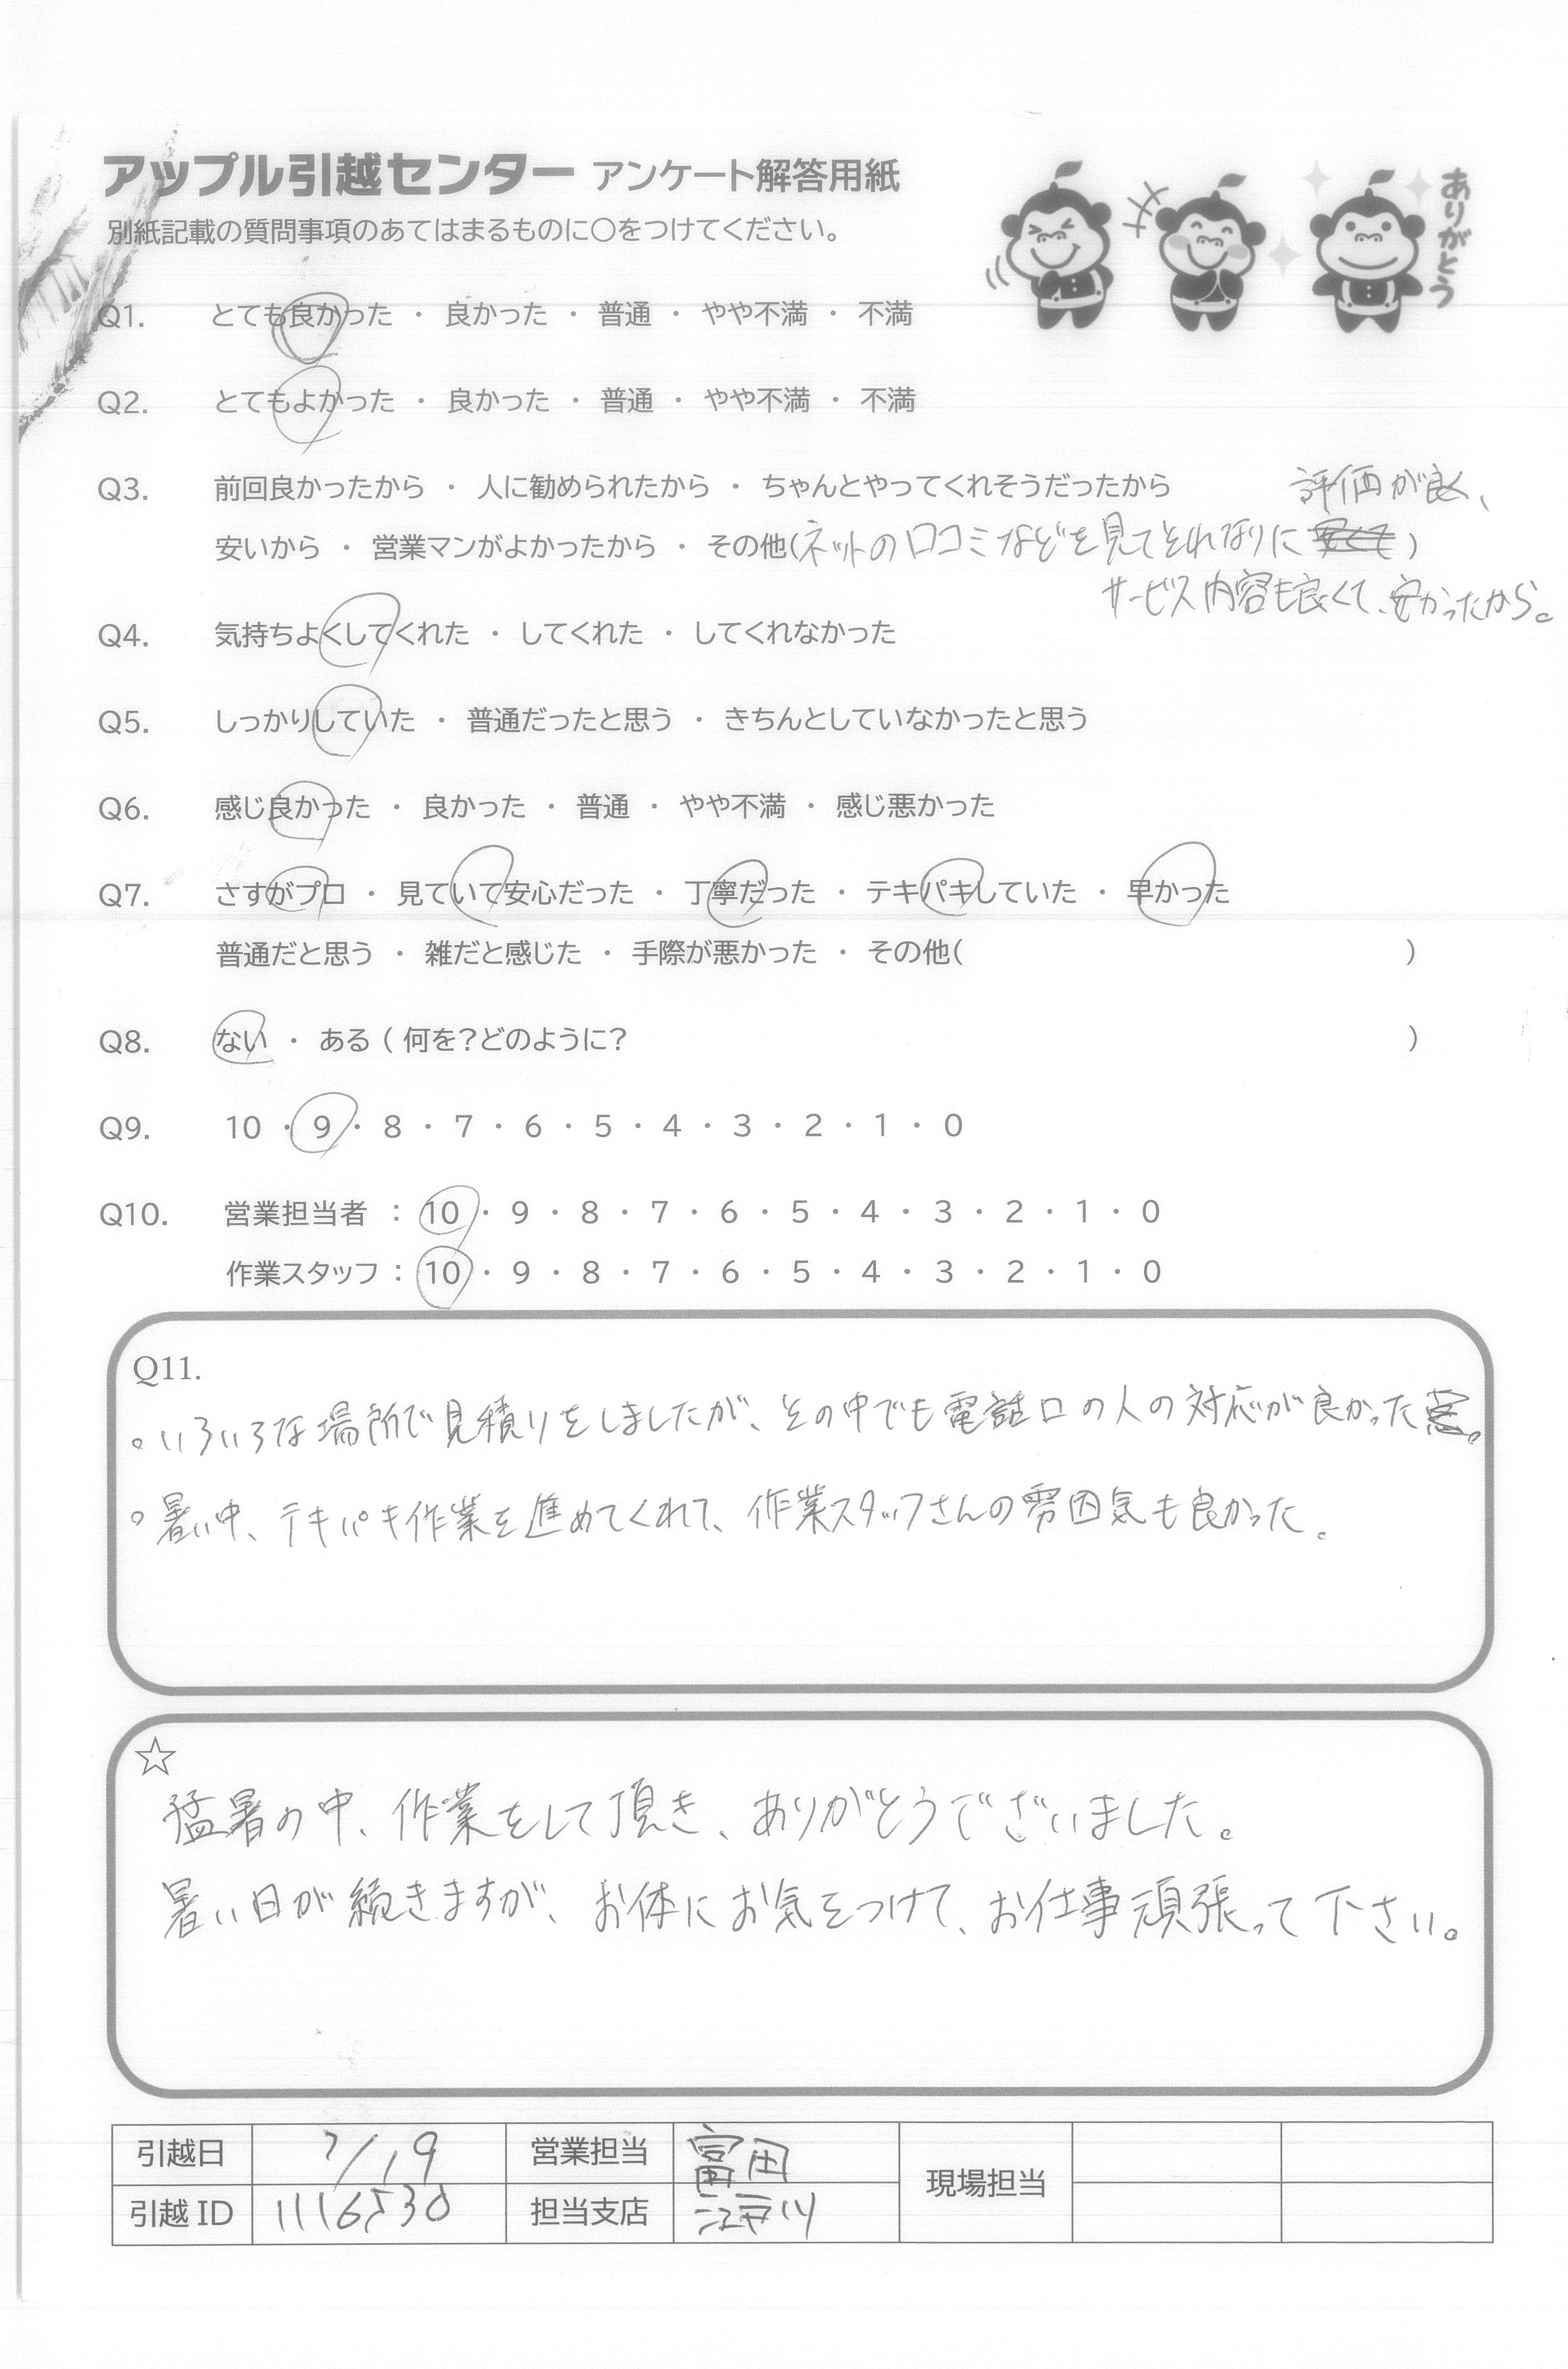 アップル引越センター アンケート解答用紙
別紙記載の質問事項のあてはまるものに〇をつけてください。
ありがとう
Q1. とても良かった ・ 良かった ・ 普通 ・ やや不満 ・ 不満
Q2. とてもよかった ・ 良かった ・ 普通 ・ やや不満 ・ 不満
Q3. 前回良かったから ・ 人に勧められたから ・ ちゃんとやってくれそうだったから 評価が良く、
安いから ・ 営業マンがよかったから ・ その他(ネットの口コミなどを見てそれなりに )
サービス内容も良くて、安かったから。
Q4. 気持ちよくしてくれた ・ してくれた ・ してくれなかった
Q5. しっかりしていた ・ 普通だったと思う ・ きちんとしていなかったと思う
Q6. 感じ良かった ・ 良かった ・ 普通 ・ やや不満 ・ 感じ悪かった
Q7. さすがプロ ・ 見ていて安心だった ・ 丁寧だった ・ テキパキしていた ・ 早かった
普通だと思う ・ 雑だと感じた ・ 手際が悪かった ・ その他( )
Q8. ない ・ ある ( 何を?どのように? )
Q9. 10 ・ 9 ・ 8 ・ 7 ・ 6 ・ 5 ・ 4 ・ 3 ・ 2 ・ 1 ・ 0
Q10. 営業担当者 : 10 ・ 9 ・ 8 ・ 7 ・ 6 ・ 5 ・ 4 ・ 3 ・ 2 ・ 1 ・ 0
作業スタッフ : 10 ・ 9 ・ 8 ・ 7 ・ 6 ・ 5 ・ 4 ・ 3 ・ 2 ・ 1 ・ 0
Q11.
。いろいろな場所で見積りをしましたが、その中でも電話口の人の対応が良かった。
。暑い中、テキパキ作業を進めてくれて、作業スタッフさんの雰囲気も良かった。
☆
猛暑の中、作業をして頂き、ありがとうございました。
暑い日が続きますが、お体にお気をつけて、お仕事頑張って下さい。
引越日 7/19 営業担当 富田 現場担当
引越 ID 1116530 担当支店 江戸川